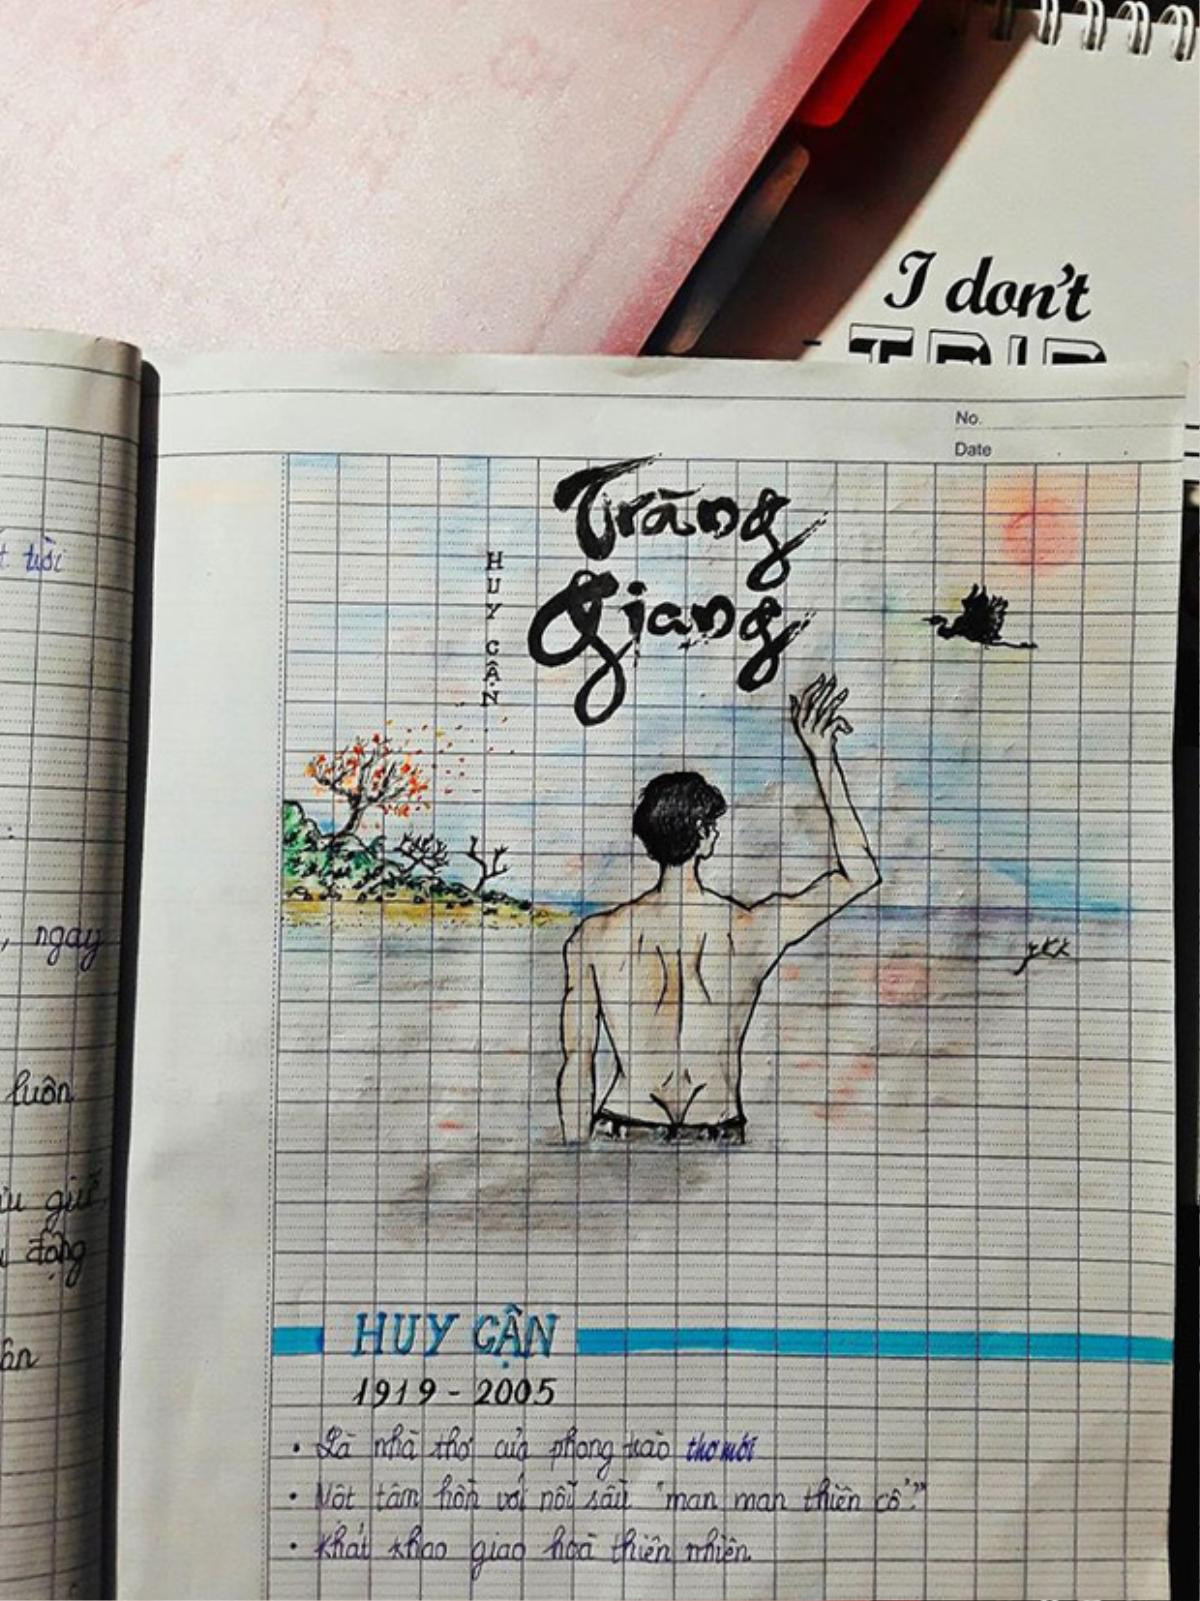 I don't
TRIP
No.
Date
Tràng
Giang
HUY CẬN
t tươi
, ngay
luôn
giữ,
động
ân
HUY CẬN
1919 - 2005
• Là nhà thơ của phong trào thơ mới
• Một tâm hồn với nỗi sầu "man man thiên cổ."
• Khát khao giao hoà thiên nhiên